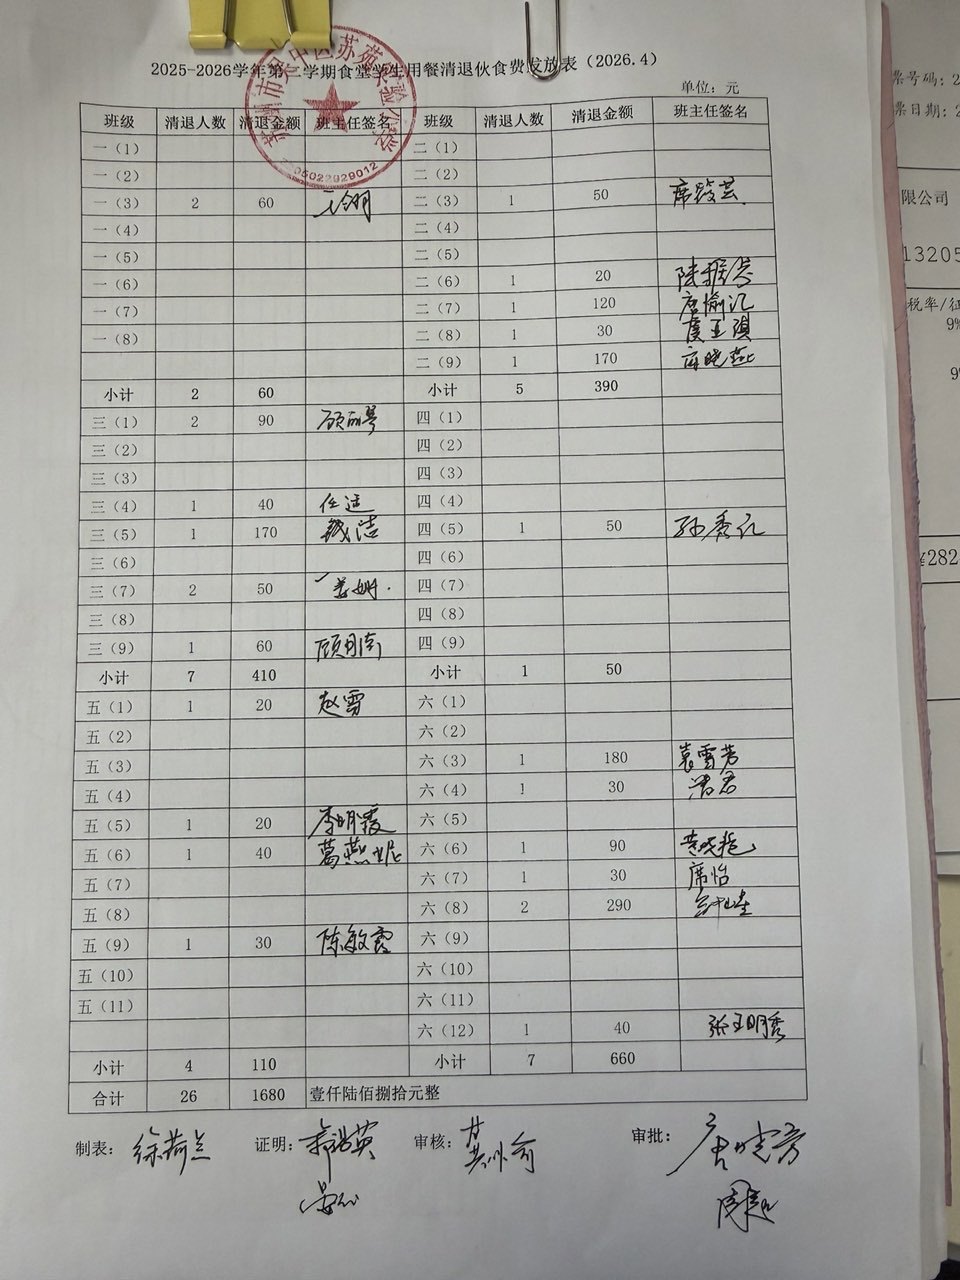 2025-2026学年第二学期食堂学生用餐清退伙食费发放表（2026.4）
单位：元
班级 清退人数 清退金额 班主任签名 班级 清退人数 清退金额 班主任签名
一（1） 二（1）
一（2） 二（2）
一（3） 2 60 二（3） 1 50
一（4） 二（4）
一（5） 二（5）
一（6） 二（6） 1 20
一（7） 二（7） 1 120
一（8） 二（8） 1 30
二（9） 1 170
小计 2 60 小计 5 390
三（1） 2 90 四（1）
三（2） 四（2）
三（3） 四（3）
三（4） 1 40 任适 四（4）
三（5） 1 170 钱洁 四（5） 1 50
三（6） 四（6）
三（7） 2 50 四（7）
三（8） 四（8）
三（9） 1 60 四（9）
小计 7 410 小计 1 50
五（1） 1 20 赵雪 六（1）
五（2） 六（2）
五（3） 六（3） 1 180 袁雪芳
五（4） 六（4） 1 30
五（5） 1 20 李明霞 六（5）
五（6） 1 40 葛燕妮 六（6） 1 90
五（7） 六（7） 1 30 席怡
五（8） 六（8） 2 290
五（9） 1 30 陈敏霞 六（9）
五（10） 六（10）
五（11） 六（11）
六（12） 1 40 张王明秀
小计 4 110 小计 7 660
合计 26 1680 壹仟陆佰捌拾元整
制表： 证明： 审核： 审批：
票号码：2
票日期：2
限公司
13205
税率/征
9%
9%
¥282